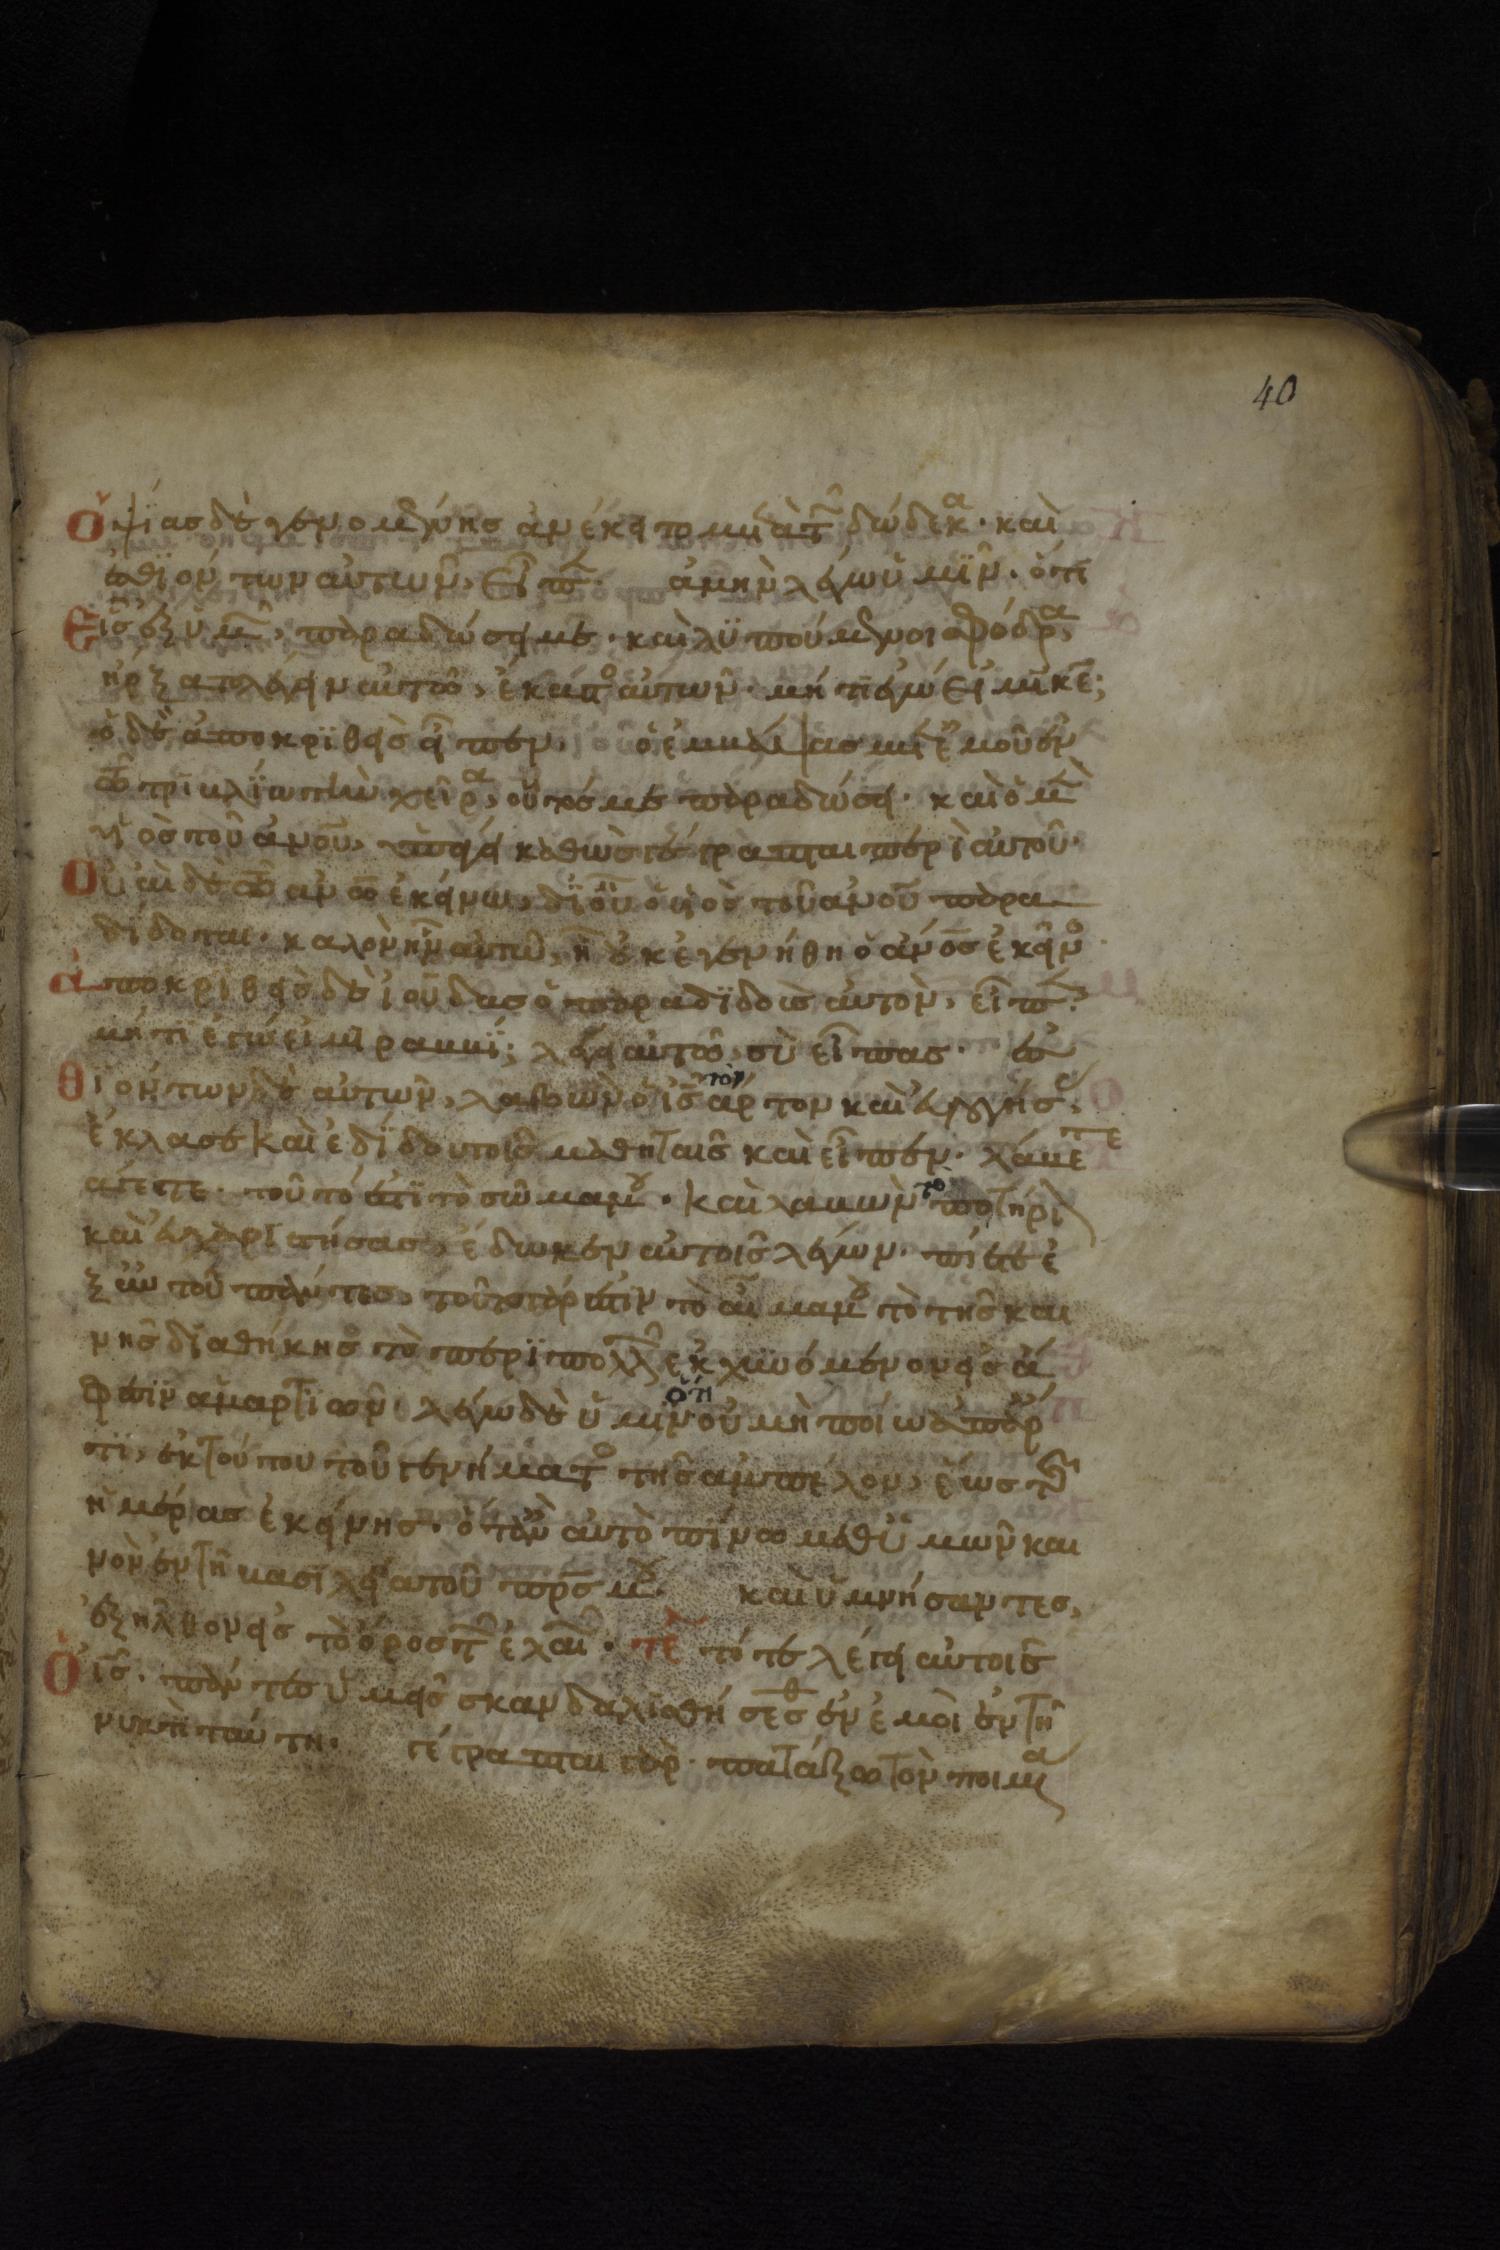 40
Ὀψίας δὲ γενομένης ἀνέκειτο μετὰ τῶν δώδεκα· καὶ
ἐσθϊόντων αὐτῶν, εἶπεν· ἀμὴν λέγω ὑμῖν· ὅτι
εἷς ἐξ ὑμῶν, παραδώσει με· καὶ λυπούμενοι σφόδρα,
ἤρξατο λέγειν αὐτῶ, ἕκαστος αὐτῶν· μήτι ἐγώ εἰμι κε;
ὁ δὲ ἀποκρϊθεὶς εἶπεν· ὁ ἐμβάψας μετ' ἐμοῦ ἐν
τῶ τρυβλίω τὴν χεῖρα, οὗτός με παραδώσει· καὶ ὁ μὲν
υἱὸς τοῦ ἀνου, ὑπάγει καθὼς γέγραπται περὶ αὐτοῦ·
Οὐαὶ δὲ τῶ ανω ἐκείνω, δι' οὗ ὁ υἱὸς τοῦ ἀνου παρα
δίδοται· καλὸν ἦν αὐτῶ, εἰ οὐκ ἐγενήθη ὁ ἀνος ἐκεῖνος·
ἀποκριθεὶς δὲ ἰούδας ὁ παραδϊδοὺς αὐτὸν, εἶπε·
μήτι ἐγώ εἰμι ραββί; λέγει αὐτῶ, σὺ εἶπας· ἐσ
θιόντων δὲ αὐτῶν, λαβὼν ὁ ις τὸν ἄρτον καὶ εὐλογήσας,
ἔκλασε καὶ ἐδίδου τοῖς μαθηταῖς καὶ εἶπεν· λάβετε
φάγετε· τοῦτό ἐστι τὸ σῶμα μου· καὶ λαβὼν τὸ ποτήριον
καὶ εὐχαριστήσας, ἔδωκεν αὐτοῖς λέγων· πίετε ἐ
ξ αὐτοῦ πάντες, τοῦτο γάρ ἐστιν τὸ αἷμα μου τὸ τῆς και
νῆς διαθήκης τὸ περὶ πολλῶν ἐκχυνόμενον εἰς ἄ
φεσιν ἁμαρτιῶν· λέγω δὲ ὑμῖν ὅτι οὐ μὴ πίω ἀπάρ
τι, ἐκ τούτου τοῦ γενήματος τῆς ἀμπέλου, ἕως τῆς
ἡμέρας ἐκείνης· ὅταν αὐτὸ πίνω μεθ' ὑμῶν και
νὸν ἐν τῆ βασιλεία τοῦ πρς μου· καὶ ὑμνήσαντες,
ἐξῆλθον εἰς τὸ ὄρος τῶν ἐλαιῶν· τε τότε λέγει αὐτοῖς
ὁ ις· πάντες ὑμεῖς σκανδαλισθήσεσθε ἐν ἐμοὶ ἐν τῆ
νυκτὶ ταύτη· γέγραπται γάρ· πατάξω τὸν ποιμένα